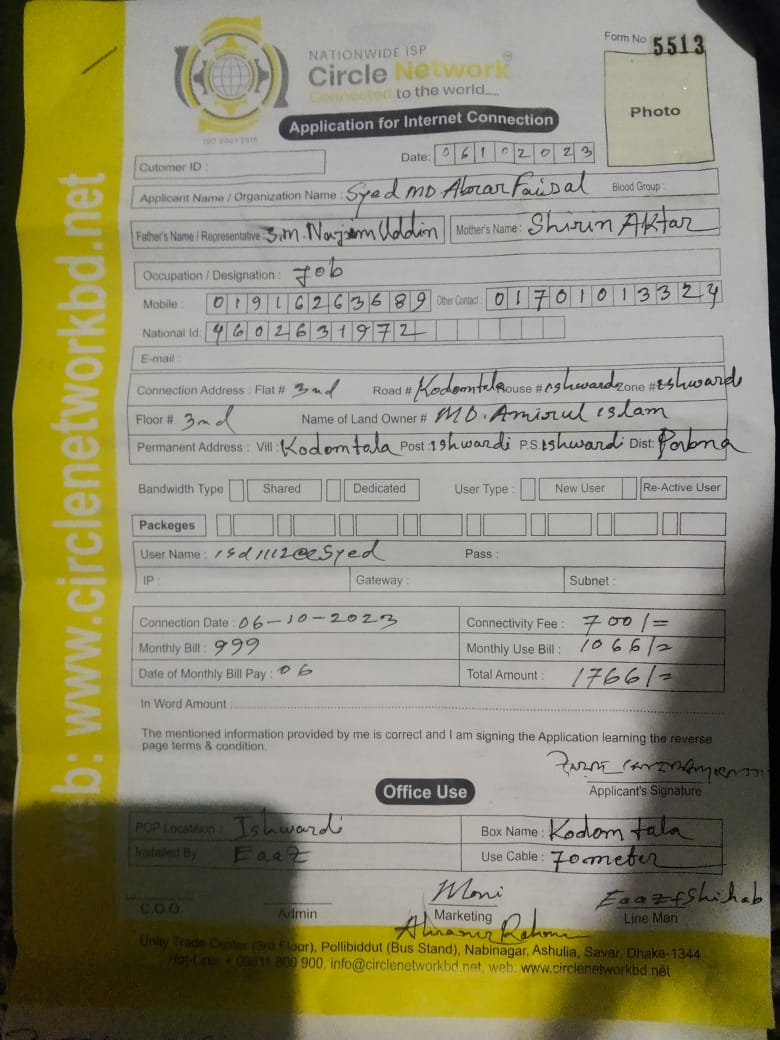 NATIONWIDE ISP
Circle Network
Connected to the world.....
ISO 9001:2015
Form No 5513
Photo
Application for Internet Connection
Date: 06102023
Cutomer ID :
Applicant Name / Organization Name : Syed MD. Abrar Faisal Blood Group :
Father's Name / Representative : S.M. Najem Uddin Mother's Name : Shirin Aktar
Occupation / Designation : Job
Mobile : 01916263689 Other Contact : 01701013324
National Id: 4602631972
E-mail :
Connection Address : Flat # 3nd Road # Kodomtala House # ishwardi Zone # ishwardi
Floor # 3nd Name of Land Owner # MD. Amirul islam
Permanent Address : Vill : Kodomtala Post : ishwardi P.S. ishwardi Dist: Pabna
Bandwidth Type Shared Dedicated User Type : New User Re-Active User
Packeges
User Name : isd1112@eSyed Pass :
IP : Gateway : Subnet :
Connection Date : 06-10-2023 Connectivity Fee : 700/=
Monthly Bill : 999 Monthly Use Bill : 1066/=
Date of Monthly Bill Pay : 06 Total Amount : 1766/=
In Word Amount :
The mentioned information provided by me is correct and I am signing the Application learning the reverse
page terms & condition.
Applicant's Signature
Office Use
POP Locatition : Ishwardi Box Name : Kodom tala
Installed By EaaZ Use Cable : 70 meter
Moni EaaZ + Shihab
C.O.O Admin Marketing Line Man
Rahman
Unity Trade Center (3rd Floor), Pollibiddut (Bus Stand), Nabinagar, Ashulia, Savar, Dhaka-1344
Hot-Line: + 09611 800 900, info@circlenetworkbd.net, web: www.circlenetworkbd.net
web: www.circlenetworkbd.net